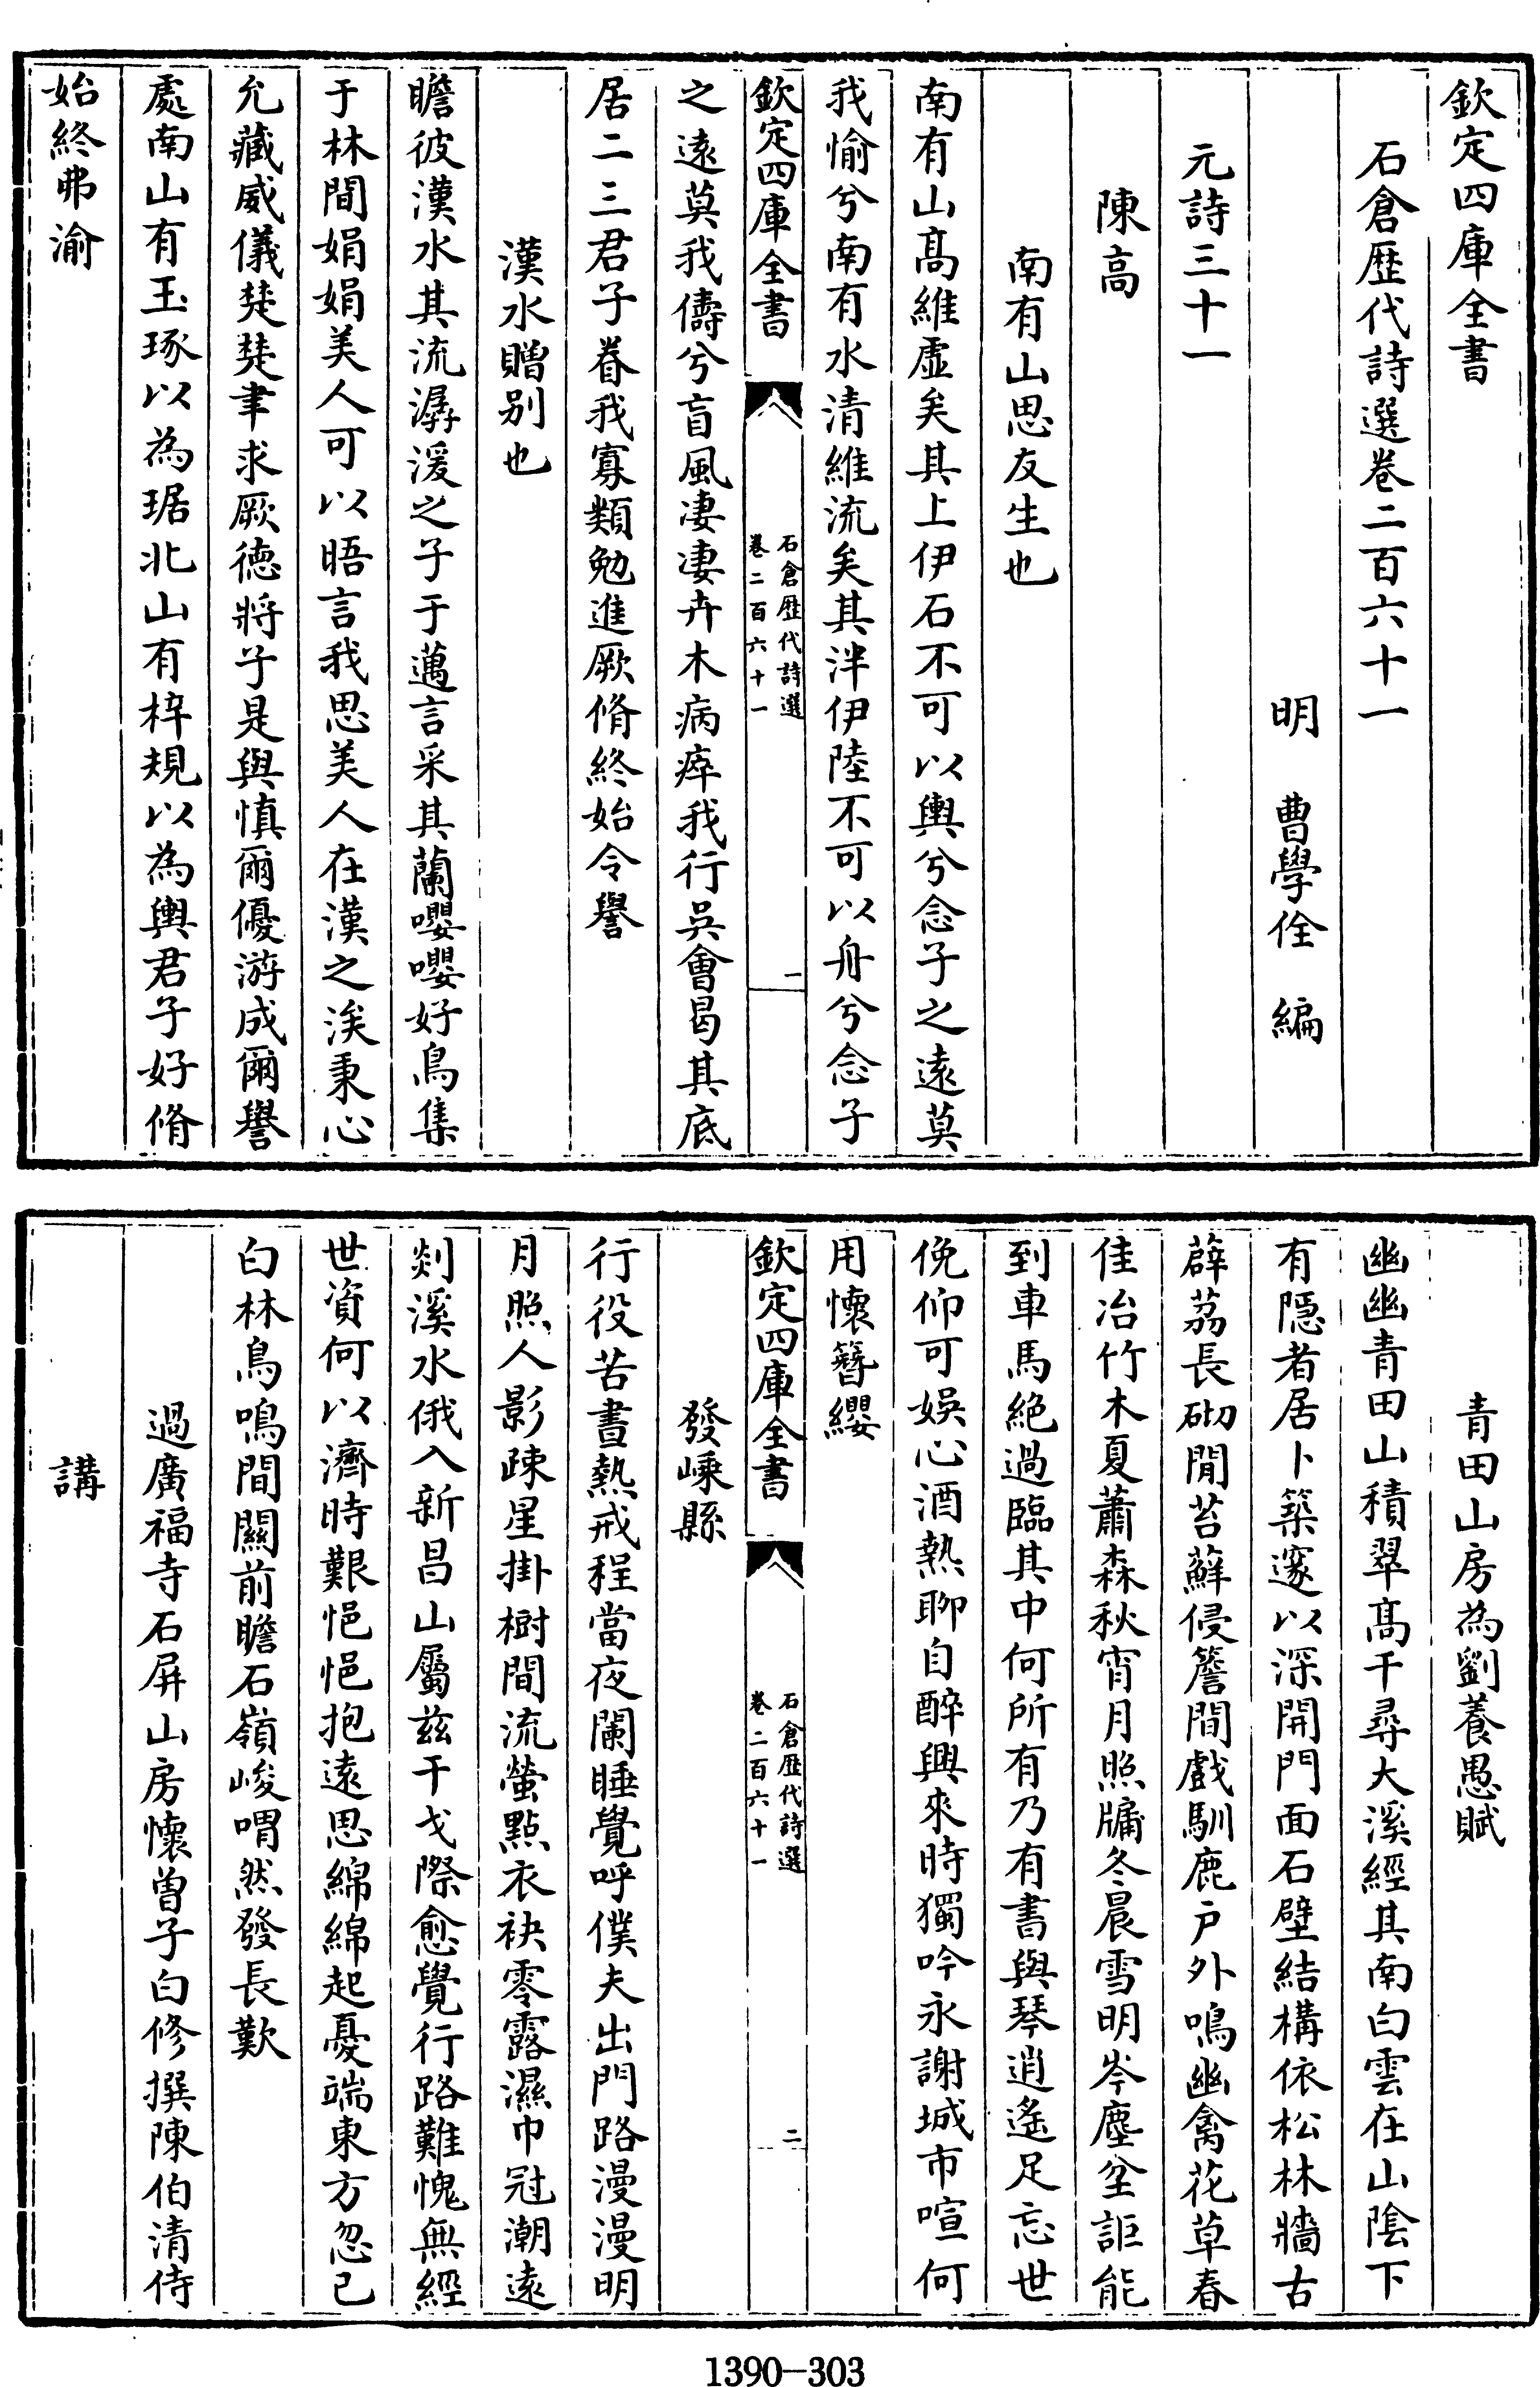 欽定四庫全書
石倉歴代詩選卷二百六十一
明 曹學佺 編
元詩三十一
陳高
南有山思友生也
南有山髙維虚矣其上伊石不可以輿兮念子之遠莫
我愉兮南有水清維流矣其泮伊陸不可以舟兮念子
欽定四庫全書
石倉歴代詩選
卷二百六十一
一
之遠莫我儔兮盲風凄凄卉木病瘁我行吳會曷其底
居二三君子眷我寡類勉進厥脩終始令譽
漢水贈别也
瞻彼漢水其流潺湲之子于邁言采其蘭嚶嚶好鳥集
于林間娟娟美人可以晤言我思美人在漢之涘秉心
允藏威儀楚楚聿求厥徳將子是與慎爾優游成爾譽
處南山有玉琢以為琚北山有梓規以為輿君子好脩
始終弗渝
青田山房為劉養愚賦
幽幽青田山積翠髙千尋大溪經其南白雲在山隂下
有隠者居卜築邃以深開門面石壁結構依松林牆古
薜荔長砌閒苔蘚侵簷間戲馴鹿户外鳴幽禽花草春
佳冶竹木夏蕭森秋宵月照牖冬晨雪明岑塵坌詎能
到車馬絶過臨其中何所有乃有書與琴逍遙足忘世
俛仰可娱心酒熱聊自醉興來時獨吟永謝城市喧何
用懷簪纓
欽定四庫全書
石倉歴代詩選
卷二百六十一
二
發嵊縣
行役苦晝熱戒程當夜闌睡覺呼僕夫出門路漫漫明
月照人影疎星掛樹間流螢點衣袂零露濕巾冠潮遠
剡溪水俄入新昌山屬兹干戈際愈覺行路難愧無經
世資何以濟時艱悒悒抱遠思綿綿起憂端東方忽已
白林鳥鳴間關前瞻石嶺峻喟然發長歎
過廣福寺石屏山房懷曽子白修撰陳伯清侍
講
1390-303